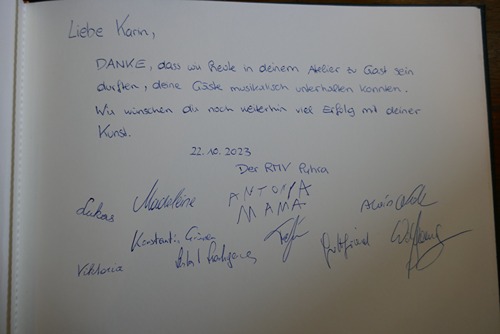 Liebe Karin,
DANKE, dass wir heute in deinem Atelier zu Gast sein
durften, deine Gäste musikalisch unterhalten konnten.
Wir wünschen dir noch weiterhin viel Erfolg mit deiner
Kunst.
22.10.2023
Der RMV Pyhra
Lukas Madeleine ANTONIA
MAMA
Konstantin Gottfried Wolfgang
Viktoria